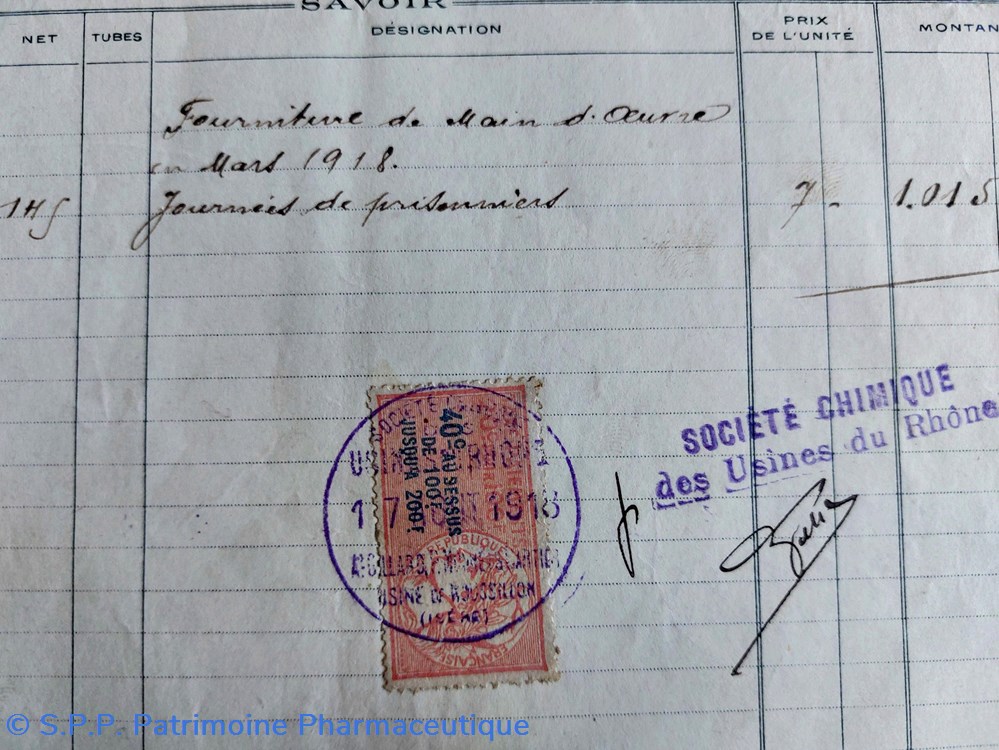 SAVOIR
NET TUBES DÉSIGNATION PRIX DE L'UNITÉ MONTAN
Fourniture de Main d'Œuvre
en Mars 1918.
145 Journées de prisonniers 7 - 1.015
SOCIÉTÉ CHIMIQUE
des Usines du Rhône
40c AU DESSUS
DE 100F
JUSQU'A 200F
RÉPUBLIQUE
FRANÇAISE
17 1918
USINE DE ROUSSILLON
(ISERE)
© S.P.P. Patrimoine Pharmaceutique